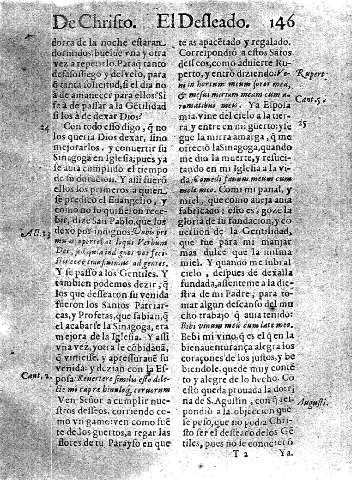 De Christo. El Desseado. 146
dorca de la noche estaran
dormidos, buelue vna y otra
vez a repetirlo. Para q̃ tanto
desassossiego y desvelo, para
q̃ tanta solicitud, si el dia no
à de amanecer para ellos? Si
se à de passar a la Gẽtilidad
si los à de dexar Dios?
24 Con todo esso digo, q̃ no
los queria Dios dexar, sino
mejorarlos, y convertir su
Sinagoga en Iglesia, pues ya
se auia cumplido el tiempo
de su duracion. Y assi fuerõ
ellos los primeros a quien
se predicò el Euangelio, y
como no lo quisieron rece-
bir, dize San Pablo, que los
dexò por indignos: Vobis pri-
Act. 13 mũ oportebat loqui Verbum
Dei,
ecce convertimur ad gentes,
Y se passò a los Gentiles. Y
tambien podemos dezir, q̃
los que dessearon su venida
fueron los Santos Patriar-
cas, y Profetas, que sabian, q̃
el acabarse la Sinagoga, era
mejora de la Iglesia. Y assi
vna vez, y otra le cõbidauã,
q̃ viniesse, y apressurauã su
venida: y dezian con la Es-
Cant. 2. posa: Revertere similis esto dile-
cte mi capreæ hinnuloq́; cervorum
Ven Señor a cumplir nues-
tros desseos, corriendo co-
mo vn gamo: ven como fuẽ
te de los huertos, a regar las
flores de tu Parayso en que
te as apacẽtado y regalado.
Correspondiò a estos Sãtos
desseos, como aduierte Ru-
perto, y entrò diziendo: Ve- Rupert.
ni in hortum meum soror mea,
messui myrrham meam cum a- Cant. 5.
romatibus meis. Ya Esposa
mia, vine del cielo a la tier-
ra, y entre en mi guerto; y le- 25
guè la mirra amarga, q̃ me
ofreciò la Sinagoga, quando
me dio la muerte, y resusci-
tando en mi Iglesia a la vi-
da. Comedi fauum meum cum
melle meo. Comi mi panal, y
miel, que como aueja auia
fabricado; esto es; gozè la
gloria de su fundacion, y cõ
uersion de la Gentilidad,
que fue para mi manjar
mas dulce que la misma
miel. Y quando me subi al
cielo, despues de dexalla
fundada, assiẽteme a la die-
stra de mi Padre, para to-
mar algun descanso del mu
cho trabajo q̃ auia tenido:
Bibi vinum meũ cum lacte meo.
Bebi mi vino, q̃ es el q̃ en la
bienauẽturança alegra los
coraçones de los justos, y be
biendole, quede muy conte
to y alegre de lo hecho. Co
esto queda prouada la dotri
na de S. Augustin, con q̃ res- Augusti.
pondiò a la objeccion que
se puso, que no podia Chris-
to ser el desseado de los Gẽ
tiles, pues no le conociero
T 2 Ya.